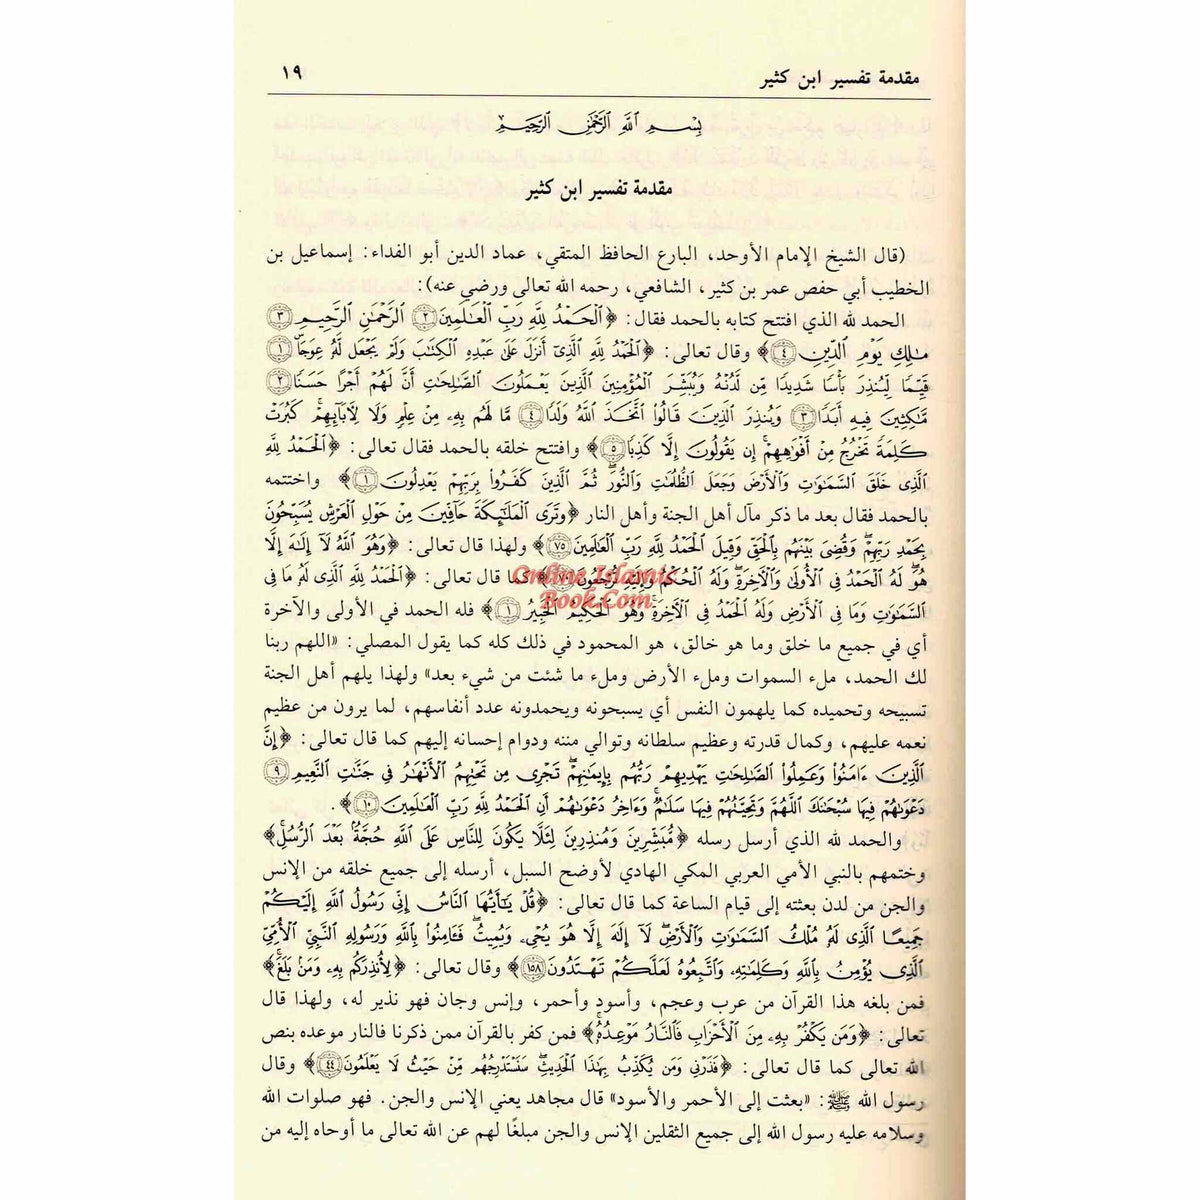 مقدمة تفسير ابن كثير ١٩
بِسْمِ اللَّهِ الرَّحْمَٰنِ الرَّحِيمِ
مقدمة تفسير ابن كثير
(قال الشيخ الإمام الأوحد، البارع الحافظ المتقي، عماد الدين أبو الفداء: إسماعيل بن
الخطيب أبي حفص عمر بن كثير، الشافعي، رحمه الله تعالى ورضي عنه):
الحمد لله الذي افتتح كتابه بالحمد فقال: ﴿الْحَمْدُ لِلَّهِ رَبِّ الْعَالَمِينَ ٢ الرَّحْمَٰنِ الرَّحِيمِ ٣
مَالِكِ يَوْمِ الدِّينِ ٤﴾ وقال تعالى: ﴿الْحَمْدُ لِلَّهِ الَّذِي أَنزَلَ عَلَىٰ عَبْدِهِ الْكِتَابَ وَلَمْ يَجْعَل لَّهُ عِوَجًا ١
قَيِّمًا لِّيُنذِرَ بَأْسًا شَدِيدًا مِّن لَّدُنْهُ وَيُبَشِّرَ الْمُؤْمِنِينَ الَّذِينَ يَعْمَلُونَ الصَّالِحَاتِ أَنَّ لَهُمْ أَجْرًا حَسَنًا ٢
مَّاكِثِينَ فِيهِ أَبَدًا ٣ وَيُنذِرَ الَّذِينَ قَالُوا اتَّخَذَ اللَّهُ وَلَدًا ٤ مَّا لَهُم بِهِ مِنْ عِلْمٍ وَلَا لِآبَائِهِمْ كَبُرَتْ
كَلِمَةً تَخْرُجُ مِنْ أَفْوَاهِهِمْ إِن يَقُولُونَ إِلَّا كَذِبًا ٥﴾ وافتتح خلقه بالحمد فقال تعالى: ﴿الْحَمْدُ لِلَّهِ
الَّذِي خَلَقَ السَّمَاوَاتِ وَالْأَرْضَ وَجَعَلَ الظُّلُمَاتِ وَالنُّورَ ثُمَّ الَّذِينَ كَفَرُوا بِرَبِّهِمْ يَعْدِلُونَ ١﴾ واختتمه
بالحمد فقال بعد ما ذكر مآل أهل الجنة وأهل النار ﴿وَتَرَى الْمَلَائِكَةَ حَافِّينَ مِنْ حَوْلِ الْعَرْشِ يُسَبِّحُونَ
بِحَمْدِ رَبِّهِمْ وَقُضِيَ بَيْنَهُم بِالْحَقِّ وَقِيلَ الْحَمْدُ لِلَّهِ رَبِّ الْعَالَمِينَ ٧٥﴾ ولهذا قال تعالى: ﴿وَهُوَ اللَّهُ لَا إِلَٰهَ إِلَّا
هُوَ لَهُ الْحَمْدُ فِي الْأُولَىٰ وَالْآخِرَةِ وَلَهُ الْحُكْمُ وَإِلَيْهِ تُرْجَعُونَ﴾ كما قال تعالى: ﴿الْحَمْدُ لِلَّهِ الَّذِي لَهُ مَا فِي
Online Islamic
Book.Com
السَّمَاوَاتِ وَمَا فِي الْأَرْضِ وَلَهُ الْحَمْدُ فِي الْآخِرَةِ وَهُوَ الْحَكِيمُ الْخَبِيرُ ١﴾ فله الحمد في الأولى والآخرة
أي في جميع ما خلق وما هو خالق، هو المحمود في ذلك كله كما يقول المصلي: «اللهم ربنا
لك الحمد، ملء السموات وملء الأرض وملء ما شئت من شيء بعد» ولهذا يلهم أهل الجنة
تسبيحه وتحميده كما يلهمون النفس أي يسبحونه ويحمدونه عدد أنفاسهم، لما يرون من عظيم
نعمه عليهم، وكمال قدرته وعظيم سلطانه وتوالي مننه ودوام إحسانه إليهم كما قال تعالى: ﴿إِنَّ
الَّذِينَ ءَامَنُوا وَعَمِلُوا الصَّالِحَاتِ يَهْدِيهِمْ رَبُّهُم بِإِيمَانِهِمْ تَجْرِي مِن تَحْتِهِمُ الْأَنْهَارُ فِي جَنَّاتِ النَّعِيمِ ٩
دَعْوَاهُمْ فِيهَا سُبْحَانَكَ اللَّهُمَّ وَتَحِيَّتُهُمْ فِيهَا سَلَامٌ وَءَاخِرُ دَعْوَاهُمْ أَنِ الْحَمْدُ لِلَّهِ رَبِّ الْعَالَمِينَ ١٠﴾.
والحمد لله الذي أرسل رسله ﴿مُّبَشِّرِينَ وَمُنذِرِينَ لِئَلَّا يَكُونَ لِلنَّاسِ عَلَى اللَّهِ حُجَّةٌ بَعْدَ الرُّسُلِ﴾
وختمهم بالنبي الأمي العربي المكي الهادي لأوضح السبل، أرسله إلى جميع خلقه من الإنس
والجن من لدن بعثته إلى قيام الساعة كما قال تعالى: ﴿قُلْ يَا أَيُّهَا النَّاسُ إِنِّي رَسُولُ اللَّهِ إِلَيْكُمْ
جَمِيعًا الَّذِي لَهُ مُلْكُ السَّمَاوَاتِ وَالْأَرْضِ لَا إِلَٰهَ إِلَّا هُوَ يُحْيِي وَيُمِيتُ فَآمِنُوا بِاللَّهِ وَرَسُولِهِ النَّبِيِّ الْأُمِّيِّ
الَّذِي يُؤْمِنُ بِاللَّهِ وَكَلِمَاتِهِ وَاتَّبِعُوهُ لَعَلَّكُمْ تَهْتَدُونَ ١٥٨﴾ وقال تعالى: ﴿لِأُنذِرَكُم بِهِ وَمَن بَلَغَ﴾
فمن بلغه هذا القرآن من عرب وعجم، وأسود وأحمر، وإنس وجان فهو نذير له، ولهذا قال
تعالى: ﴿وَمَن يَكْفُرْ بِهِ مِنَ الْأَحْزَابِ فَالنَّارُ مَوْعِدُهُ﴾ فمن كفر بالقرآن ممن ذكرنا فالنار موعده بنص
الله تعالى كما قال تعالى: ﴿فَذَرْنِي وَمَن يُكَذِّبُ بِهَٰذَا الْحَدِيثِ سَنَسْتَدْرِجُهُم مِّنْ حَيْثُ لَا يَعْلَمُونَ ٤٤﴾ وقال
رسول الله ﷺ: «بعثت إلى الأحمر والأسود» قال مجاهد يعني الإنس والجن. فهو صلوات الله
وسلامه عليه رسول الله إلى جميع الثقلين الإنس والجن مبلغًا لهم عن الله تعالى ما أوحاه إليه من